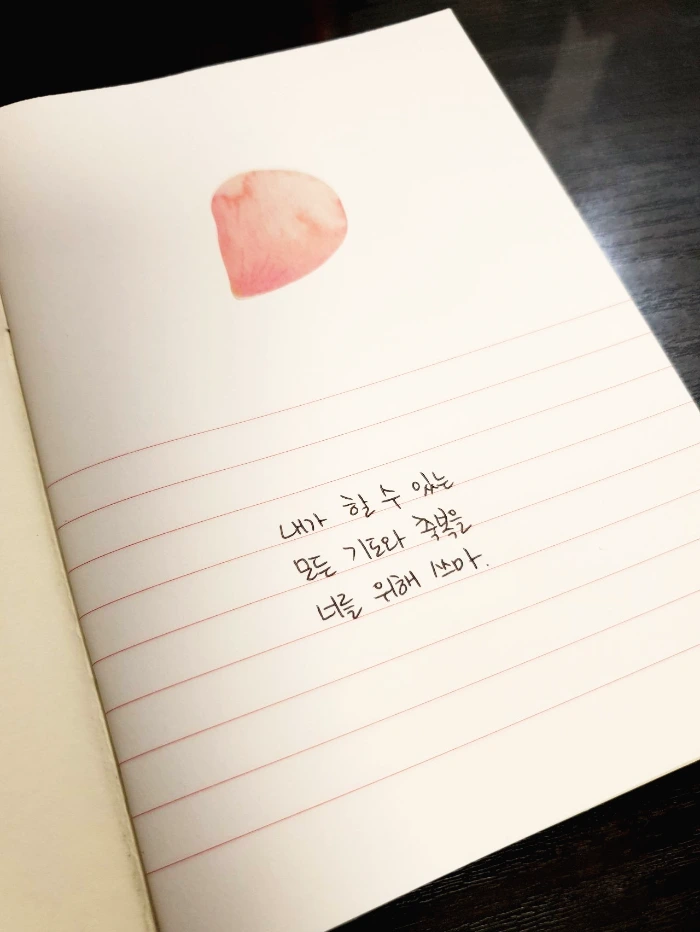 내가 할 수 있는
모든 기도와 축복을
너를 위해 쓰마.